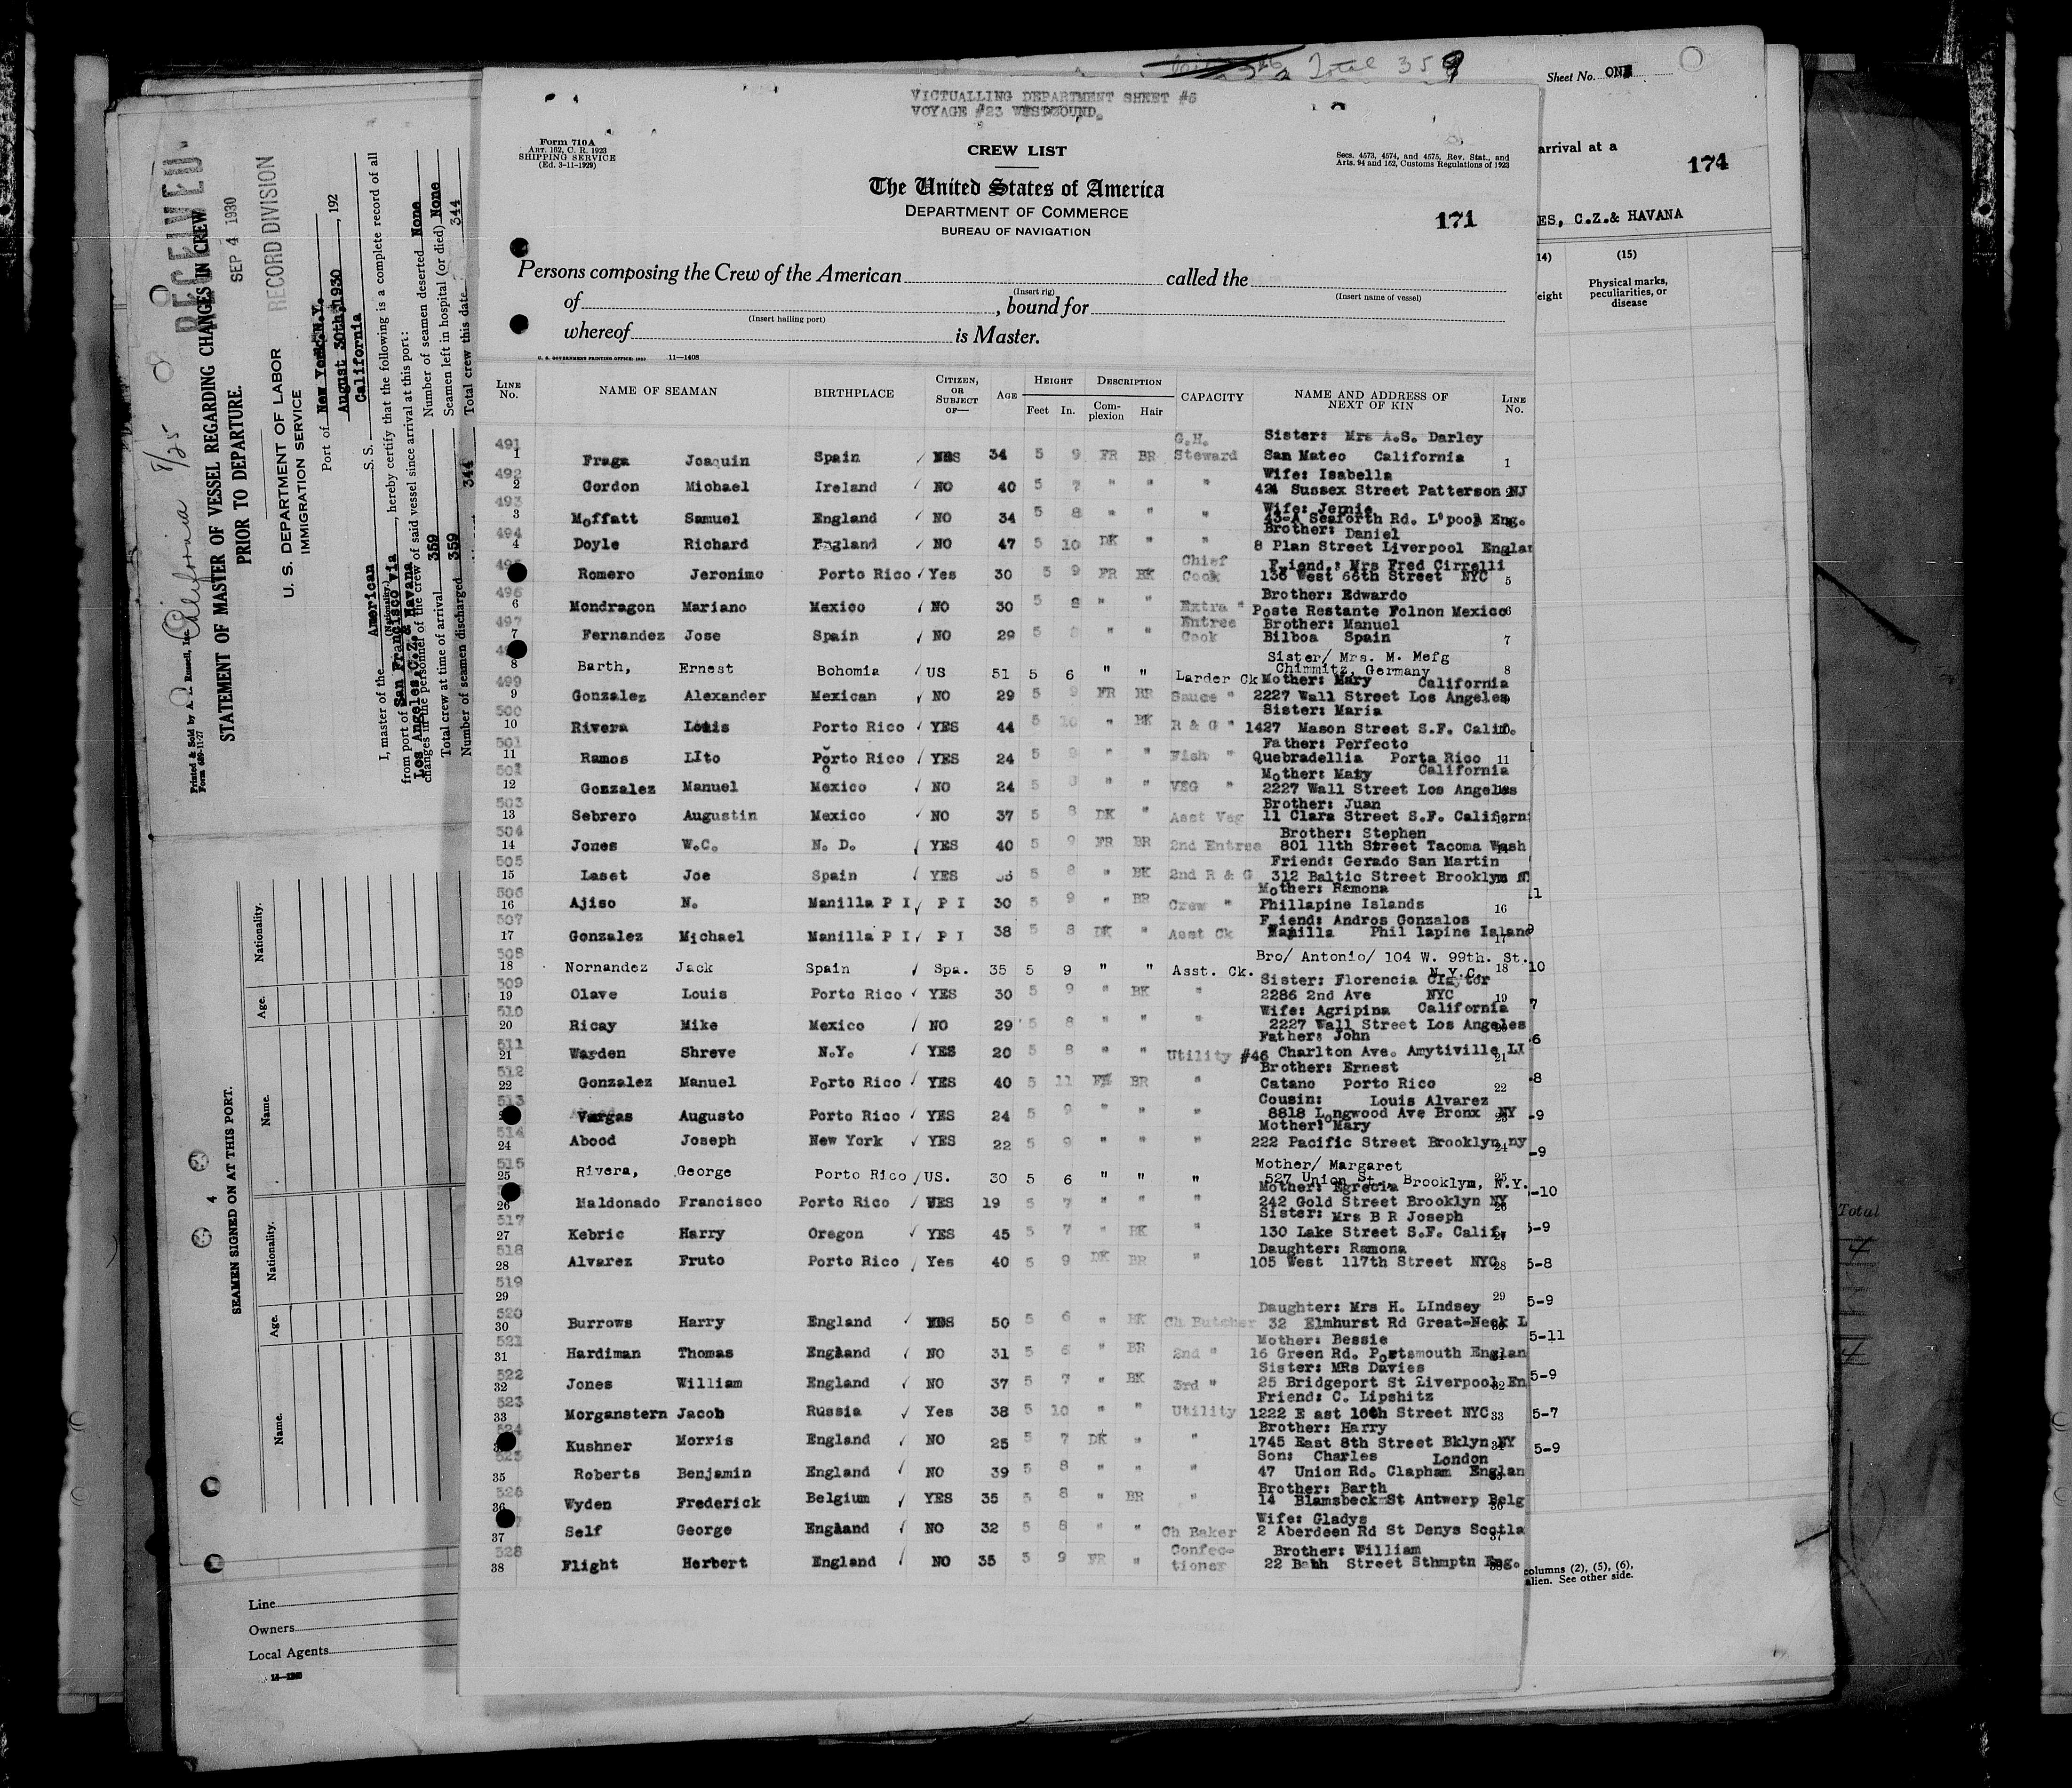 Total 359
VICTUALLING DEPARTMENT SHEET #5
VOYAGE #23 WESTBOUND.
Sheet No. ONE
Form 710A
ART. 162, C. R. 1923
SHIPPING SERVICE
(Ed. 3-11-1929)
CREW LIST
Secs. 4573, 4574, and 4575, Rev. Stat., and
Arts. 94 and 162, Customs Regulations of 1923
The United States of America
DEPARTMENT OF COMMERCE
BUREAU OF NAVIGATION
171
Persons composing the Crew of the American called the
(Insert rig) (Insert name of vessel)
of , bound for
(Insert hailing port)
whereof is Master.
U. S. GOVERNMENT PRINTING OFFICE: 11—1408
LINE No. NAME OF SEAMAN BIRTHPLACE CITIZEN, OR SUBJECT OF— AGE HEIGHT Feet In. DESCRIPTION Complexion Hair CAPACITY NAME AND ADDRESS OF NEXT OF KIN LINE No.
491 G.H. Sister: Mrs A.S. Darley
1 Fraga Joaquin Spain 34 5 9 FR BR Steward San Mateo California 1
492 Wife: Isabella
2 Gordon Michael Ireland NO 40 5 7 " " " 424 Sussex Street Patterson NJ
493 Wife: Jennie
3 Moffatt Samuel England NO 34 5 8 " " " 43-A Seaforth Rd. L'pool Eng.
494 Brother: Daniel
4 Doyle Richard England NO 47 5 10 DK " " 8 Plan Street Liverpool Englan
Chief Friend: Mrs Fred Cirrelli
Romero Jeronimo Porto Rico Yes 30 5 9 FR BK Cook 136 West 66th Street NYC 5
496 Brother: Edwardo
6 Mondragon Mariano Mexico NO 30 5 8 " " Extra " Poste Restante Folnon Mexico 6
497 Entree Brother: Manuel
7 Fernandez Jose Spain NO 29 5 8 " " Cook Bilboa Spain 7
Sister/ Mrs. M. Mefg
8 Barth, Ernest Bohomia US 51 5 6 " " Larder Ck Chimmitz, Germany 8
499 Mother: Mary California
9 Gonzalez Alexander Mexican NO 29 5 9 FR BR Sauce " 2227 Wall Street Los Angeles
500 Sister: Maria
10 Rivera Louis Porto Rico YES 44 5 10 " BK R & G " 1427 Mason Street S.F. Calif.
501 Father: Perfecto
11 Ramos LIto Porto Rico YES 24 5 9 " " Fish " Quebradellia Porta Rico 11
502 Mother: Maty California
12 Gonzalez Manuel Mexico NO 24 5 8 " " VEG " 2227 Wall Street Los Angeles
503 Brother: Juan
13 Sebrero Augustin Mexico NO 37 5 8 DK " Asst Veg 11 Clara Street S.F. Californi
504 Brother: Stephen
14 Jones W.C. N. D. YES 40 5 9 FR BR 2nd Entree 801 11th Street Tacoma Wash
505 Friend: Gerado San Martin
15 Laset Joe Spain YES 5 8 " BK 2nd R & G 312 Baltic Street Brooklyn
506 Mother: Ramona
16 Ajiso N. Manilla P I P I 30 5 9 " BR Crew " Phillapine Islands 16
507 Friend: Andros Gonzalos
17 Gonzalez Michael Manilla P I P I 38 5 8 DK " Asst Ck Manilla Phil lapine Island
508 Bro/ Antonio/ 104 W. 99th. St.
18 Nornandez Jack Spain Spa. 35 5 9 " " Asst. Ck. N.Y.C. 18
509 Sister: Florencia Clastor
19 Olave Louis Porto Rico YES 30 5 9 " BK " 2286 2nd Ave NYC 19
510 Wife: Agripina California
20 Ricay Mike Mexico NO 29 5 8 " " " 2227 Wall Street Los Angeles
511 Father: John
21 Warden Shreve N.Y. YES 20 5 8 " " Utility #46 Charlton Ave. Amytiville LI 21
512 Brother: Ernest
22 Gonzalez Manuel Porto Rico YES 40 5 11 BR " Catano Porto Rico 22
513 Cousin: Louis Alvarez
Vargas Augusto Porto Rico YES 24 5 9 " " " 8818 Longwood Ave Bronx NY
514 Mother: Mary
24 Abood Joseph New York YES 22 5 9 " " " 222 Pacific Street Brooklyn ny 24
515 Mother/ Margaret
25 Rivera, George Porto Rico US. 30 5 6 " " " 527 Union St., Brooklym, N.Y. 25
Mother: Egrecia
26 Maldonado Francisco Porto Rico YES 19 5 7 " " " 242 Gold Street Brooklyn NY
517 Sister: Mrs B R Joseph
27 Kebric Harry Oregon YES 45 5 7 " BK " 130 Lake Street S.F. Calif.
518 Daughter: Ramona
28 Alvarez Fruto Porto Rico Yes 40 5 9 DK BR " 105 West 117th Street NYC 28
519
29 29
520 Daughter: Mrs H. LIndsey
30 Burrows Harry England 50 5 6 " BK Ch Butcher 32 Elmhurst Rd Great-Neck L
521 Mother: Bessie
31 Hardiman Thomas England NO 31 5 6 " BR 2nd " 16 Green Rd. Portsmouth Englan
522 Sister: MRs Davies
32 Jones William England NO 37 5 7 " BK 3rd " 25 Bridgeport St Liverpool En
523 Friend: C. Lipshitz
33 Morganstern Jacob Russia Yes 38 5 10 " " Utility 1222 E ast 10th Street NYC 33
524 Brother: Harry
Kushner Morris England NO 25 5 7 DK " " 1745 East 8th Street Bklyn NY
525 Son: Charles London
35 Roberts Benjamin England NO 39 5 8 " " " 47 Union Rd. Clapham Englan
526 Brother: Barth
36 Wyden Frederick Belgium YES 35 5 8 " BR " 14 Blamsbeck St Antwerp Belg
Wife: Gladys
37 Self George England NO 32 5 8 " " Ch Baker 2 Aberdeen Rd St Denys Scotla
528 Confec- Brother: William
38 Flight Herbert England NO 35 5 9 FR " tioner 22 Street Sthmptn Eng.
arrival at a
174
ES, C.Z.& HAVANA
14) (15)
eight Physical marks, peculiarities, or disease
11
10
7
6
-8
-9
-9
-10
5-9
5-8
5-9
5-11
5-9
5-7
5-9
columns (2), (5), (6),
alien. See other side.
Total
California 8/25
RECEIVED
SEP 4 1930
RECORD DIVISION
Printed & Sold by A. L. Russell, Inc.
Form 689-11-27
STATEMENT OF MASTER OF VESSEL REGARDING CHANGES IN CREW
PRIOR TO DEPARTURE.
U. S. DEPARTMENT OF LABOR
IMMIGRATION SERVICE
Port of New York N.Y.
August 30th, 1930, 192
I, master of the American S. S. California
(Nationality.)
from port of San Francisco via, hereby certify that the following is a complete record of all
Los Angeles, C.Z. & Havana
changes in the personnel of the crew of said vessel since arrival at this port:
Total crew at time of arrival 359 Number of seamen deserted None
Number of seamen discharged 359 Seamen left in hospital (or died) None
344 Total crew this date 344
SEAMEN SIGNED ON AT THIS PORT.
Name. Age. Nationality. Name. Age. Nationality.
4
Line
Owners
Local Agents